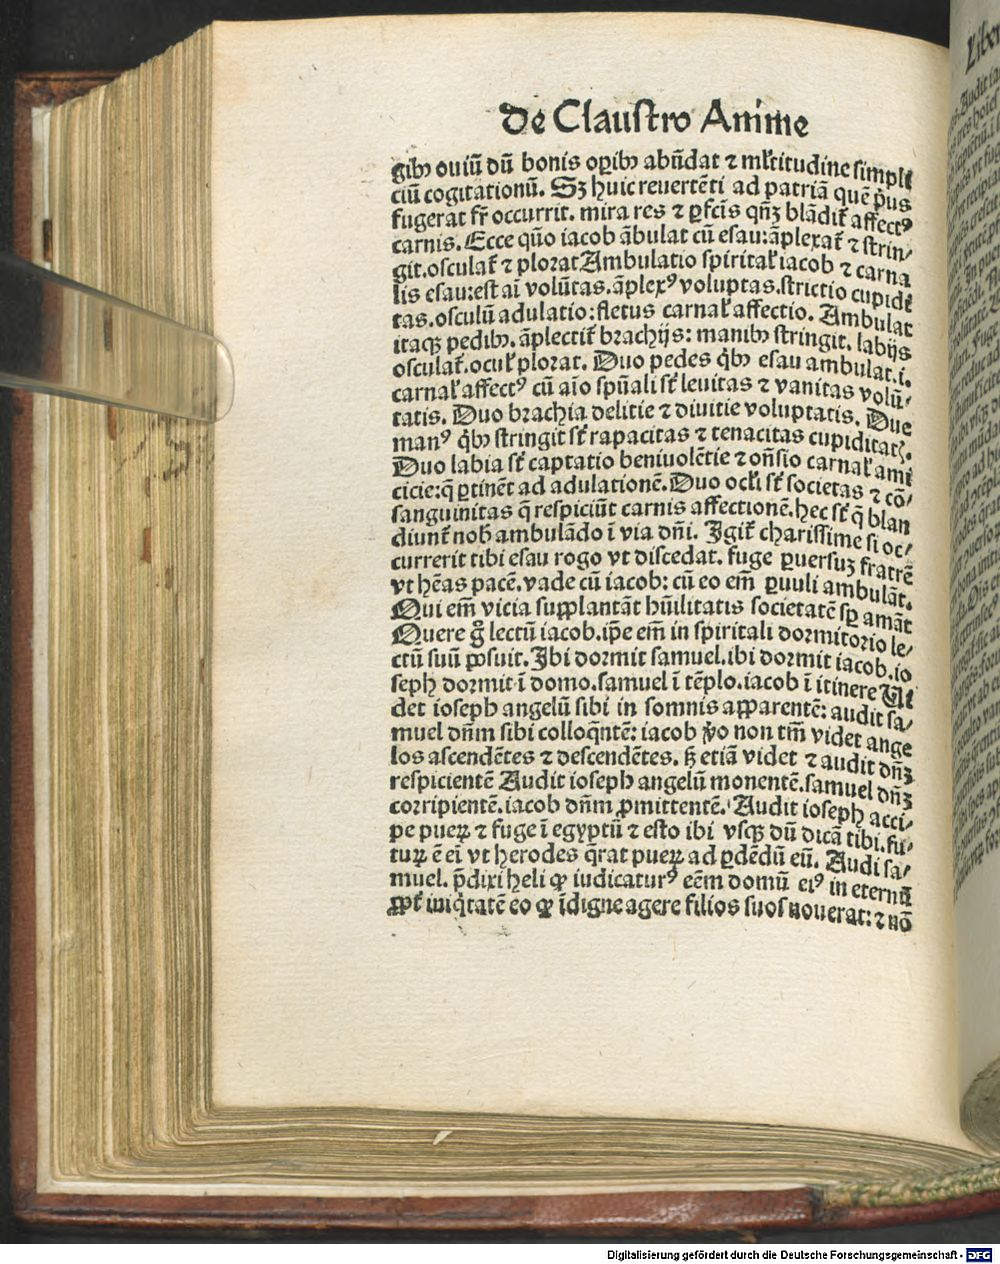 de Claustro Anime
gibꝫ ouiū dū bonis oꝑibꝫ abūdat ⁊ mĺtitudine simpli
ciū cogitationū. Sꝫ huic reuertēti ad patriā quē pᷣus
fugerat fr̄ occurrit. mira res ⁊ ꝑfcīs qn̄ꝫ blādit᷑ affectꝰ
carnis. Ecce quō iacob ābulat cū esau: āplexat᷑ ⁊ strin⸗
git. osculat᷑ ⁊ plorat Ambulatio spiritaĺ iacob ⁊ carna
lis esau: est aī volūtas. āplexꝰ voluptas. strictio cupidi
tas. osculū adulatio: fletus carnaĺ affectio. Ambulat
itaqꝫ pedibꝫ. āplectit᷑ brachijs: manibꝫ stringit. labijs
osculat᷑. ocuĺ plorat. Duo pedes qͥbꝫ esau ambulat .i.
carnaĺ affectꝰ cū aīo spūali st᷑ leuitas ⁊ vanitas volū⸗
tatis. Duo brachia delitie ⁊ diuitie voluptatis. Due
manꝰ qͥbꝫ stringit st᷑ rapacitas ⁊ tenacitas cupiditaꝭ.
Duo labia st᷑ captatio beniuolētie ⁊ oñsio carnaĺ ami
cicie: q̄ ꝑtinēt ad adulationē. Duo ocĺi st᷑ societas ⁊ cō⸗
sanguinitas q̄ respiciūt carnis affectionē. hec st᷑ q̄ blan
diunt᷑ nob̄ ambulādo ī via dn̄i. Igit᷑ charissime si oc⸗
currerit tibi esau rogo vt discedat. fuge ꝑuersuꝫ fratrē
vt hēas pacē. vade cū iacob: cū eo em̄ ꝑuuli ambulāt.
Qui em̄ vicia supplantāt hūilitatis societatē sꝑ amāt
Quere gͦ lectū iacob. ip̄e em̄ in spiritali dormitorio le⸗
ctū suū posuit. Ibi dormit samuel. ibi dormit iacob. io
seph dormit ī domo. samuel ī tēplo. iacob ī itinere Ui
det ioseph angelū sibi in somnis apparentē: audit sa⸗
muel dn̄m sibi colloq̄ntē: iacob v̊o non tm̄ videt ange
los ascendētes ⁊ descendētes. sꝫ etiā videt ⁊ audit dn̄ꝫ
respicientē Audit ioseph angelū monentē. samuel dn̄ꝫ
corripientē. iacob dn̄m ꝓmittentē. Audit ioseph acci⸗
pe pueꝝ ⁊ fuge ī egyptū ⁊ esto ibi vsqꝫ dū dicā tibi. fu⸗
tuꝝ ē eī vt herodes q̄rat pueꝝ ad ꝑdēdū eū. Audi sa⸗
muel. p̄dixi heli ꝙ iudicaturꝰ eēm domū eiꝰ in eternū
ꝓpt᷑ iniqͥtatē eo ꝙ īdigne agere filios suos nouerat: ⁊ nō
Digitalisierung gefördert durch die Deutsche Forschungsgemeinschaft - DFG